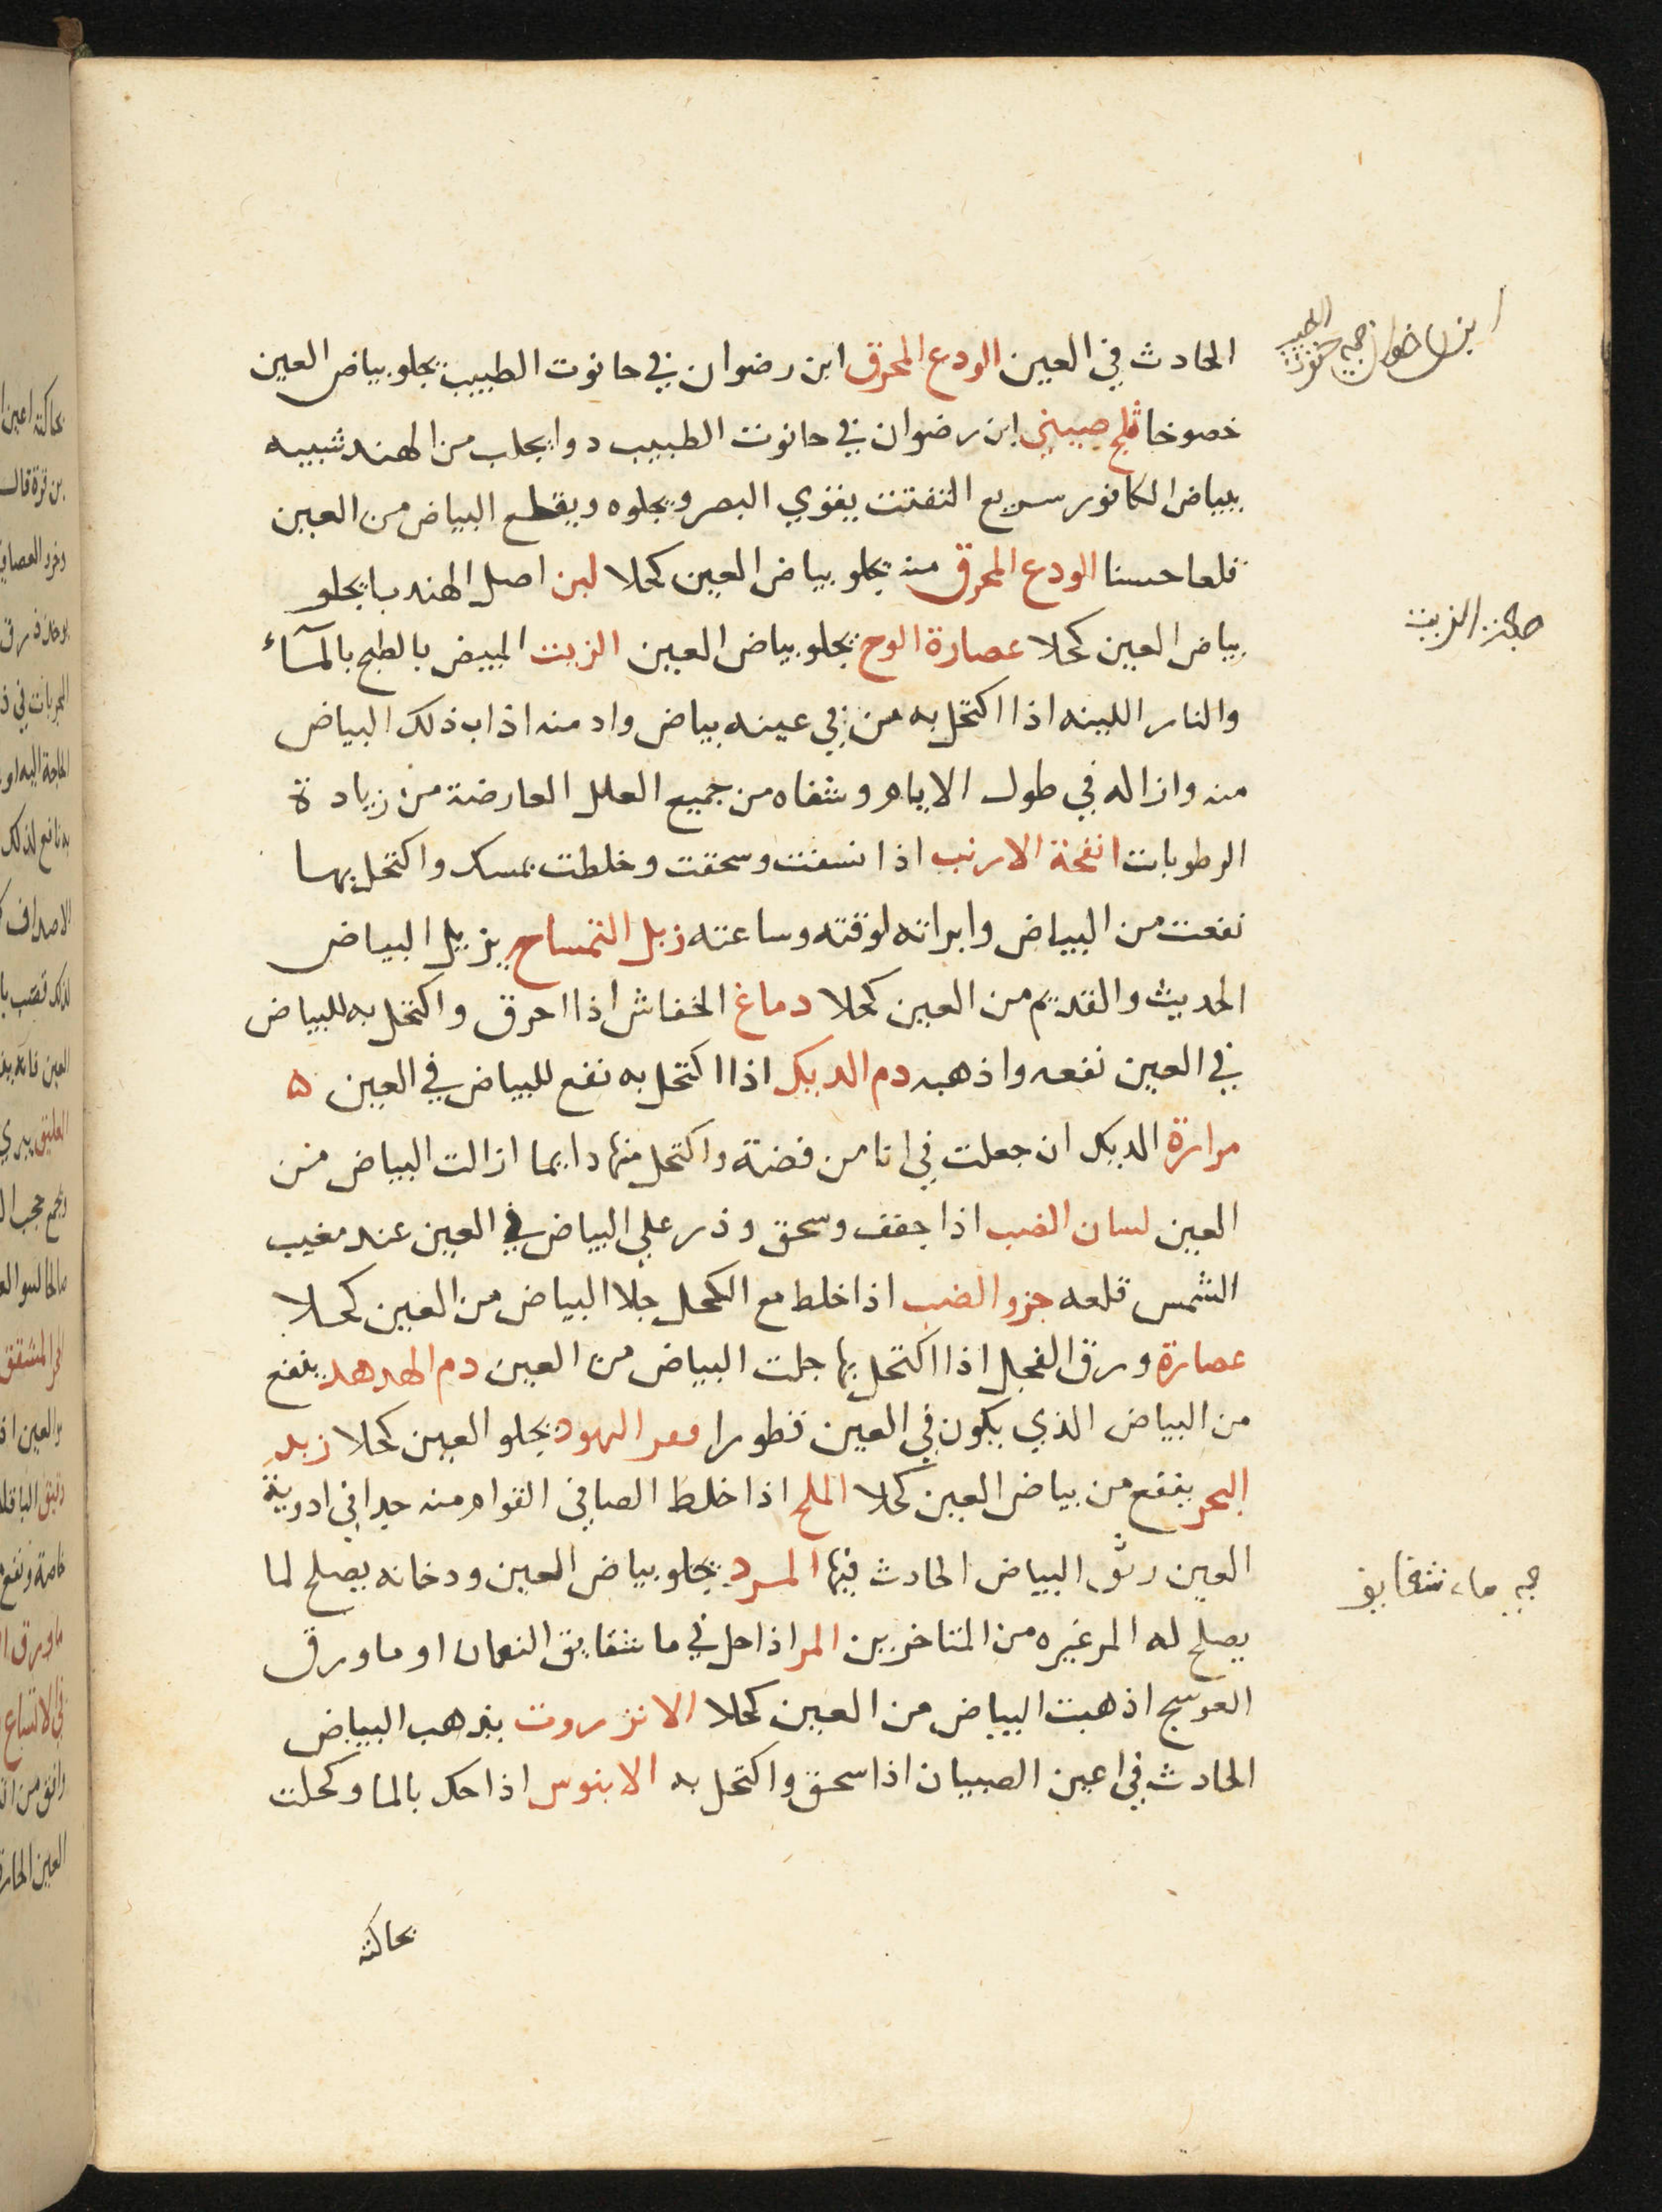 الحادث في العين الودع المحرق ابن رضوان في حانوت الطبيب يجلو بياض العين
خصوخا ثلج صيني ابن رضوان في حانوت الطبيب دوا يجلب من الهند شبيه
ببياض الكافور سريع التفتت يقوي البصر ويجلوه ويقطع البياض من العين
قلعا حسنا الودع المحرق منه يجلو بياض العين كحلا لبن اصل الهندبا يجلو
بياض العين كحلا عصارة الوج يجلو بياض العين الزيت المبيض بالطبخ بالمآء
والنار اللينه اذا اكتحل به من في عينه بياض وادمنه اذاب ذلك البياض
منه وازاله في طول الايام وشفاه من جميع العلل العارضة من زيادة
الرطوبات انفحة الارنب اذا نسفت وسحقت وخلطت بمسك واكتحل بها
نفعت من البياض وابراته لوقته وساعته زبل التمساح يزيل البياض
الحديث والقديم من العين كحلا دماغ الخفاش اذا احرق واكتحل به للبياض
في العين نفعه واذهبه دم الديك اذا اكتحل به نفع للبياض في العين ه
مرارة الديك ان جعلت في انا من فضة واكتحل منها دايما ازالت البياض من
العين لسان الضب اذا جفف وسحق وذر علي البياض في العين عند مغيب
الشمس قلعه جزو الضب اذا خلط مع الكحل جلا البياض من العين كحلا
عصارة ورق الفجل اذا اكتحل بها جلت البياض من العين دم الهدهد ينفع
من البياض الذي يكون في العين قطورا اليهود يجلو العين كحلا زبد
البحر ينفع من بياض العين كحلا الملح اذا خلط الصافي القوام منه جيدا في ادوية
العين رقق البياض الحادث فيها المر يجلو بياض العين ودخانه يصلح لما
يصلح له المر غيره من المتاخرين المر اذا حل في ما شقايق النعمان او ما ورق
العوسج اذهبت البياض من العين كحلا الانزروت يذهب البياض
الحادث في اعين الصبيان اذا سحق واكتحل به الابنوس اذا حك بالما وكحلت
بحاكته
ابن رضوان
الزيت
ماء شقايق